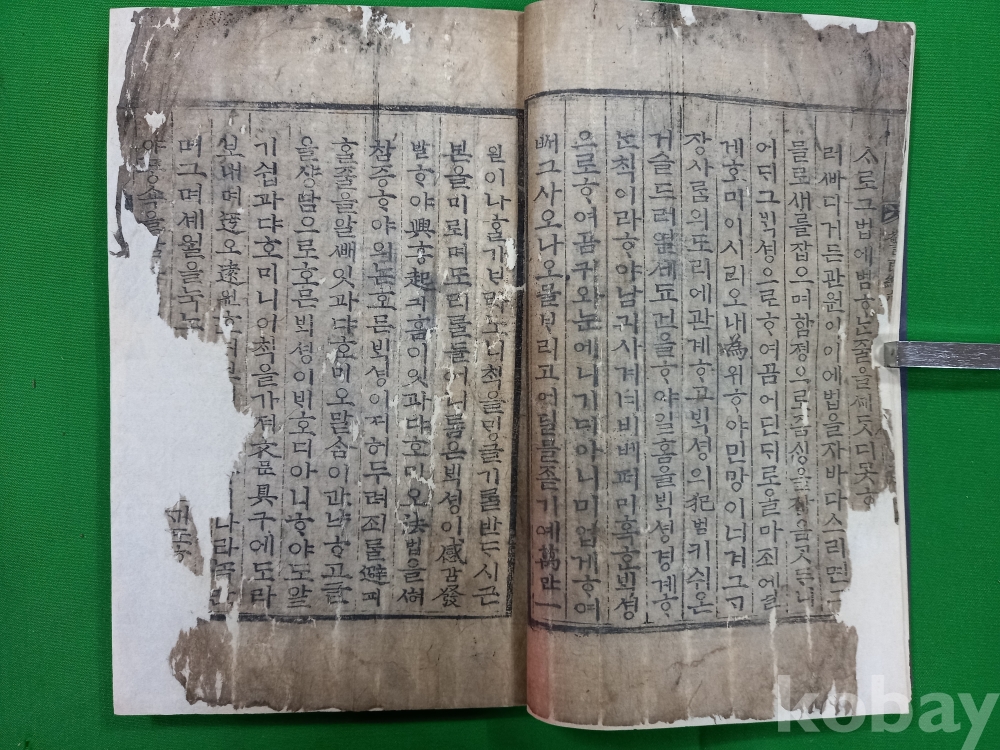 로그법에범ᄒᆞᄂᆞᆫ줄을 디못ᄒᆞ
러ᄲᅡ디거든관원이이에법을자바다ᄉᆞ리면
믈로새를잡으며함졍으로즘ᄉᆡᆼ을잡음ᄀᆞᆺᄐᆞ니
어 그ᄇᆡᆨ셩으로ᄒᆞ여곰어딘ᄃᆡ로올마죄에멀
게호미이시리오내為위ᄒᆞ야민망이너겨그ᄀᆞ
장사ᄅᆞᆷ의도리에관계ᄒᆞ고ᄇᆡᆨ셩의犯범키쉬온
거슬드러열세됴건을ᄒᆞ야일홈을ᄇᆡᆨ셩경계ᄒᆞ
ᄂᆞᆫᄎᆡᆨ이라ᄒᆞ야남긔사겨 베퍼 혹ᄒᆞᆫᄇᆡᆨ셩
으로ᄒᆞ여곰귀와눈에니기 아니미업게ᄒᆞ여
ᄡᅥ그사오나오믈ᄇᆞ리고어딜믈졷기예萬만一
원이나ᄒᆞᆯ가ᄇᆞ라노니ᄎᆡᆨ을ᄆᆡᆼ글기ᄅᆞᆯ반ᄃᆞ시근
본을미뢰며도리ᄅᆞᆯ들어니ᄅᆞ믄ᄇᆡᆨ셩이感감發
발ᄒᆞ야興흥起긔홈이잇과댜호미오法법을
참증ᄒᆞ야 논호ᄆᆞᆫᄇᆡᆨ셩이저허두려죄ᄅᆞᆯ避피
ᄒᆞᆯ줄을알 잇과댜호메오말ᄉᆞᆷ이간냑ᄒᆞ고글
을샹담으로호ᄆᆞᆫᄇᆡᆨ셩이ᄇᆡ호디아니ᄒᆞ야도알
기쉽과댜호미니이ᄎᆡᆨ을가져文문具구에도라
보내며迂오遠원ᄒᆞ 나라
며그며셰월을
야풍쇽을
kobay